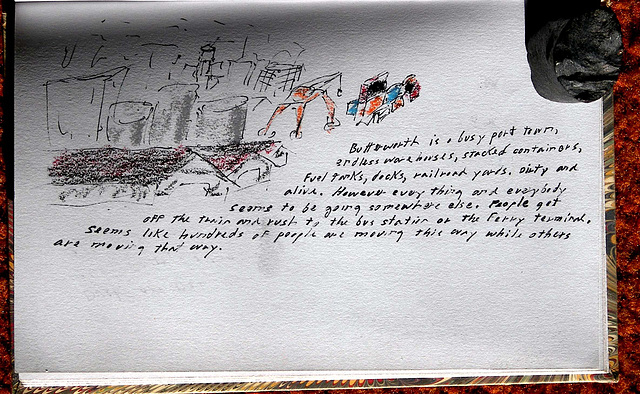 Butterworth is a busy port town,
endless warehouses, stacked containers,
Fuel tanks, docks, railroad yards. Dirty and
alive. However every thing and everybody
seems to be going somewhere else. People get
off the train and rush to the bus station or the Ferry terminal.
Seems like hundreds of people are moving this way while others
are moving that way.